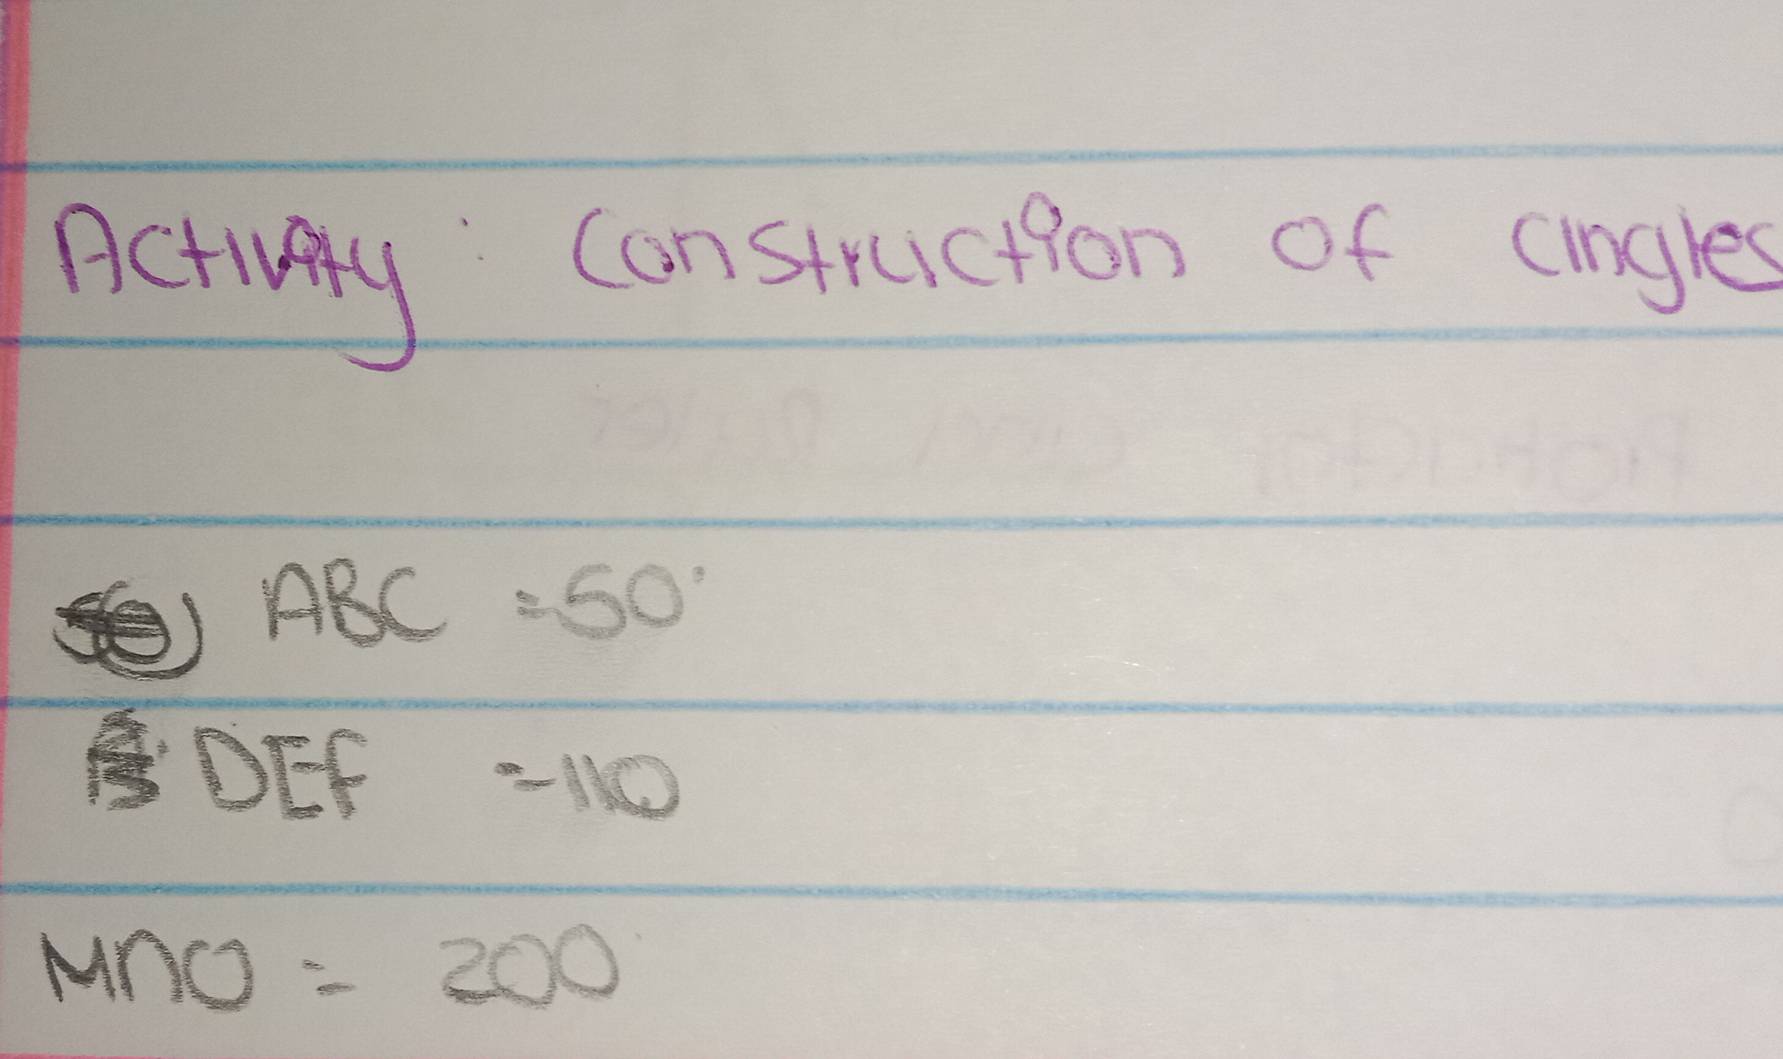 Activity: Construction of angles
ABC = 50°
DEF = 110
MNO = 200